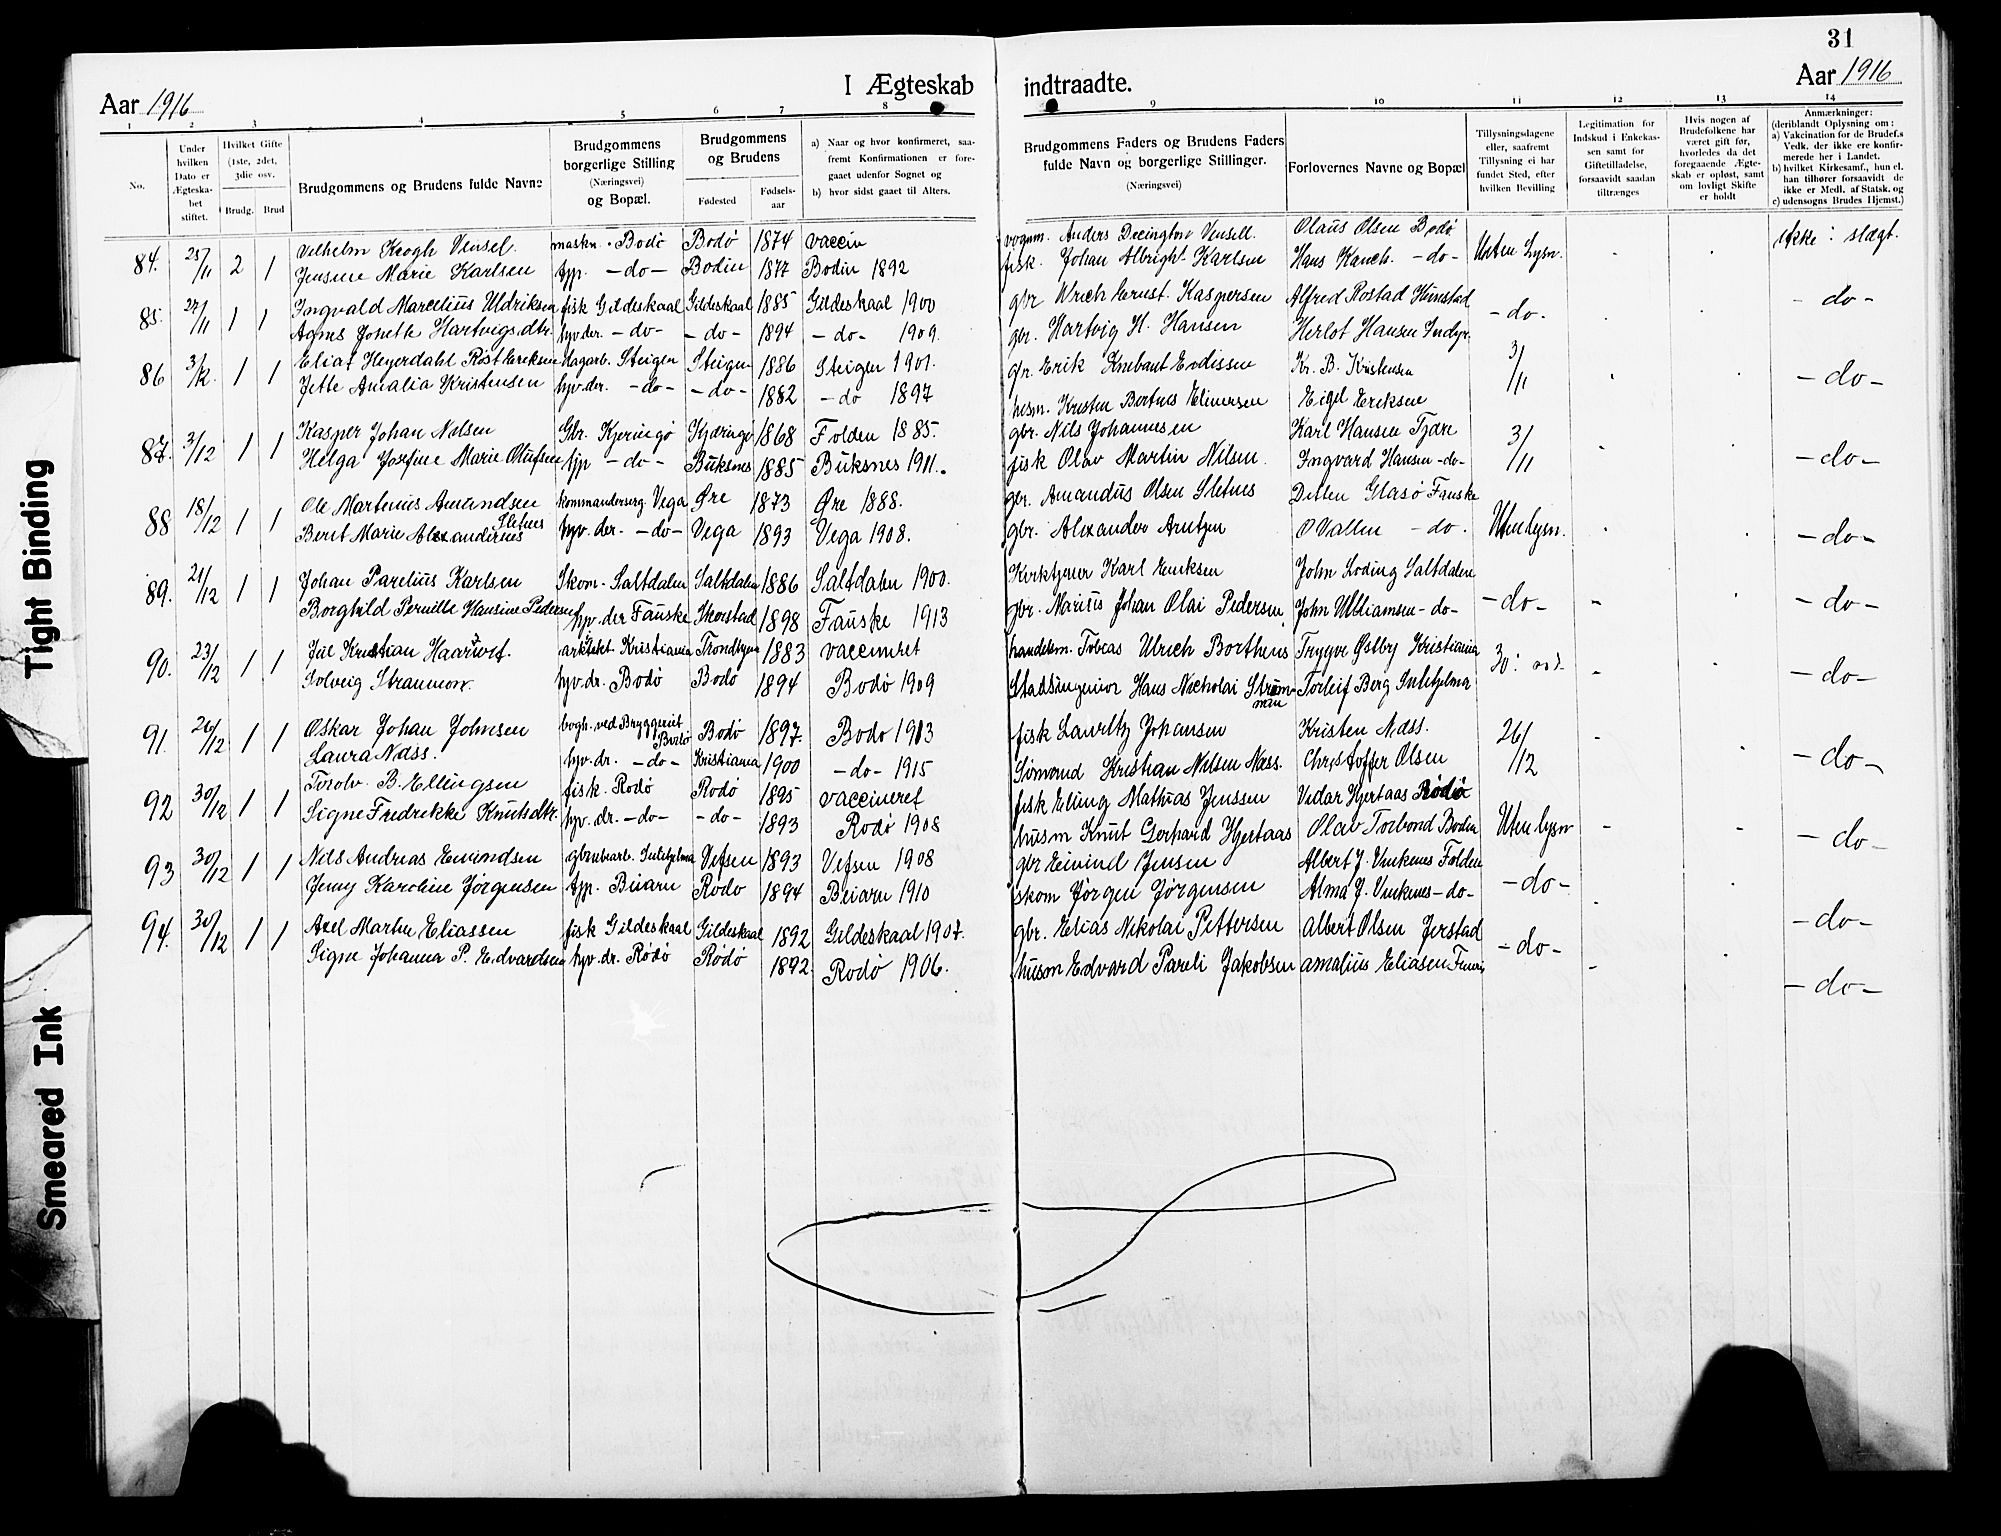 31
Aar 1916
I Ægteskab indtraadte.
Aar 1916
1 2 3 4 5 6 7 8 9 10 11 12 13 14
No.
Under hvilken Dato er Ægteska-bet stiftet.
Hvilket Gifte (1ste, 2det, 3die osv.
Brudg. Brud
Brudgommens og Brudens fulde Navne
Brudgommens borgerlige Stilling (Næringsvei) og Bopæl.
Brudgommens og Brudens
Fødested
Fødsels-aar
a) Naar og hvor konfirmeret, saa-fremt Konfirmationen er fore-gaaet udenfor Sognet og
b) hvor sidst gaaet til Alters.
Brudgommens Faders og Brudens Faders fulde Navn og borgerlige Stillinger.
(Næringsvei)
Forlovernes Navne og Bopæl
Tillysningsdagene eller, saafremt Tillysning ei har fundet Sted, efter hvilken Bevilling
Legitimation for Indskud i Enkekas-sen samt for Giftetilladelse, forsaavidt saadan tiltrænges
Hvis nogen af Brudefolkene har været gift før, hvorledes da det foregaaende Ægte-skab er opløst, samt om lovligt Skifte er holdt
Anmærkninger: (deriblandt Oplysning om:
a) Vakcination for de Brudef.s Vedk. der ikke ere konfir-merede her i Landet.
b) hvilket Kirkesamf., hun el. han tilhører forsaavidt de ikke er Medl. af Statsk. og
c) udensogns Brudes Hjemst.)
84. 25/11 2 1 Vilhelm Keogh Vensel. maskn. Bodø Bodø 1874 vaccin vognm. Anders Olaus Olsen Bodø Uten Lysn. ikke : slægt.
Jensine Marie Karlsen tjp. - do - Bodin 1877 Bodin 1892 fisk. Johan Albright Karlsen Hans - do -
85. 27/11 1 1 Ingvald Marcelius Uldriksen fisk Gildeskaal Gildeskaal 1885 Gildeskaal 1900 gbr Ulrich Ernst Kaspersen Alfred - do - - do -
Agnes Jonette Hartvigsdtr. hv. der. - do - - do - 1894 - do - 1909. gbr. Hartvig H. Hansen Herlof Hansen
86 3/12. 1 1 Elias Heyerdahl dagarb. Steigen Steigen 1886 Steigen 1901. gbr. Erik Kr. B. Kristensen 3/11 - do -
Jette Amalia Kristensen hv. der. - do - - do - 1882 - do 1897 husm. Kristen Eriksen
87. 3/12 1 1 Kasper Johan Nilsen Gbr. Kjeringø Kjæringø 1868 Folden 1885. gbr. Nils Johannesen Karl Hansen 3/11 - do -
Helga Josefine Marie Olufsen tjp - do - Buksnes 1885 Buksnes 1911. fisk Olav Martin Nilsen. Ingvard Hansen - do -
88 18/12 1 1 Ole Martinus Amundsen Sletnes Vega Øre 1873 Øre 1888. gbr. Amandus Olsen Sletnes Glasø Fauske Uten lysn. - do -
Berit Marie hv. der. - do - Vega 1893 Vega 1908. gbr. Alexander Arntzen O Vallen - do.
89. 21/12 1 1 Johan Parelius Karlsen Skom. Saltdalen Saltdalen 1886 Saltdalen 1900. Kirketjener Karl Eriksen John Loding Saltdalen - do - - do -
Borghild Pernille Hansine Pedersen hv. der Fauske Skjerstad 1898 Fauske 1913 gbr. Marius Johan Olai Pedersen John Williamsen - do -
90. 23/12 1 1 Jul Kristian arkitekt Kristiania Trondhjem 1883 vaccineret handelsm. Tobias Ulrich Trygve Østby Kristiania - do -
Solveig hv. dr. Bodø Bodø 1894 Bodø 1909 Stadsingeniør Hans Nicholai Torleif Berg Sulitjelma
91. 26/12 1 1 Oskar Johan Johnsen bogh. ved Bryggeriet Bodø Bodø 1897. Bodø 1913 fisk Lauritz Johansen Kristen Næss. 26/12 - do -
Laura Næss. hv. dr. - do - Kristiania 1900 - do - 1915 Sømand Kristian Nilsen Næss. Christoffer Olsen
92 30/12 1 1 Torolv. B. Ellingsen fisk. Rødø Rødø 1895 vaccineret fisk Elling Mathias Jenssen Vidar Hjertaas Rødø Uten lysn - do -
Signe Fredrikke Knutsdtr. hv. dr. - do - - do - 1893 Rødø 1908 husm Knut Gerhard Hjertaas Olav Bodin
93 30/12 1 1 Nils Andreas Emundsen Sulitjelma Vefsen 1893 Vefsen 1908 gbr Eivind Jensen Albert J. Folden - do - - do -
Jenny Karoline Jørgensen tjp. Beiarn Rødø 1894 Beiarn 1910 skom Jørgen Jørgensen Alma J. - do -
94. 30/12 1 1 Axel Martin Eliassen fisk Gildeskaal Gildeskaal 1892 Gildeskaal 1907. gbr. Elias Nikolai Pettersen Albert Olsen - do - - do -
Signe Johanna P. Edvardsen hv. dr. Rødø Rødø 1892 Rødø 1906. husm Edvard Pareli Jakobsen Amalius Eliasen
Tight Binding
Smeared Ink